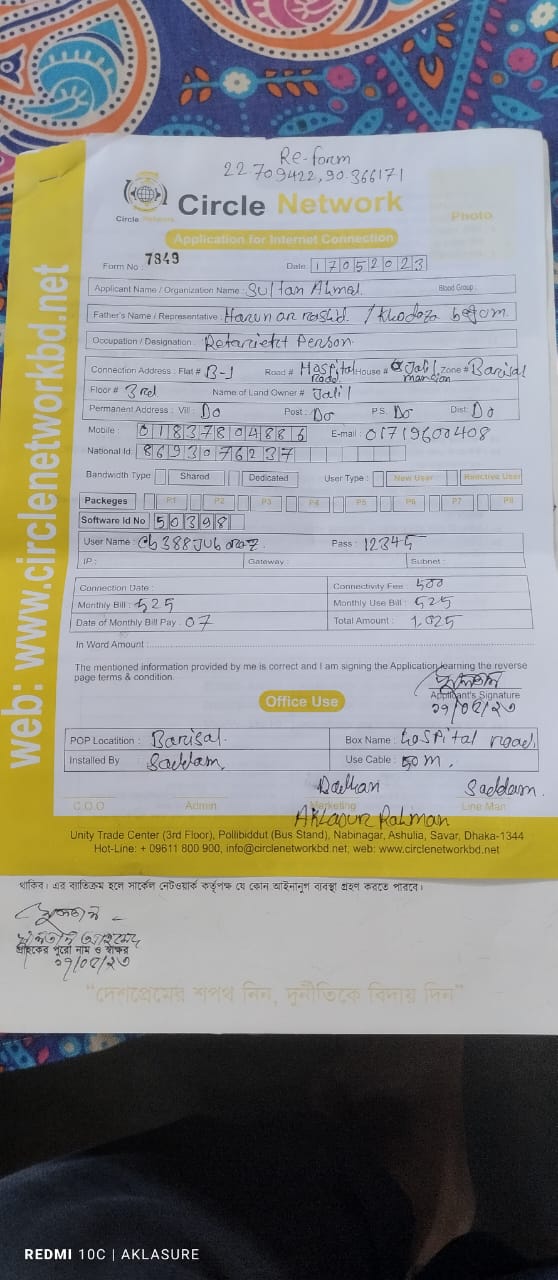 Re-form
22.709422,90.366171
Circle Network
Circle Network
Photo
Application for Internet Connection
Form No : 7849 Date: 17052023
Applicant Name / Organization Name : Sultan Ahmed. Blood Group :
Father's Name / Representative : Harun ar rashid. / Khodeza begum.
Occupation / Designation : Retarieht Person.
Connection Address : Flat # B-1 Road # Hospital road. House # Jalil mansion Zone # Barisal
Floor # 3rd Name of Land Owner # Jalil
Permanent Address : Vill : Do Post : Do P.S. Do Dist: Do
Mobile : 01837804886 E-mail : 01719600408
National Id : 8693076237
Bandwidth Type Shared Dedicated User Type : New User Reactive User
Packeges P1 P2 P3 P4 P5 P6 P7 P8
Software Id No 50398
User Name : Pass : 12345
IP : Gateway : Subnet :
Connection Date : Connectivity Fee : 500
Monthly Bill : 525 Monthly Use Bill : 525
Date of Monthly Bill Pay : 07 Total Amount : 1,025
In Word Amount :
The mentioned information provided by me is correct and I am signing the Application learning the reverse
page terms & condition.
Applicant's Signature
১৭/০৫/২৩
Office Use
POP Locatition : Barisal. Box Name : Hospital road,
Installed By Saddam. Use Cable : 50 m.
Saddam.
C.O.O Admin Marketing Line Man
Aklasur Rahman
Unity Trade Center (3rd Floor), Pollibiddut (Bus Stand), Nabinagar, Ashulia, Savar, Dhaka-1344
Hot-Line: + 09611 800 900, info@circlenetworkbd.net, web: www.circlenetworkbd.net
web: www.circlenetworkbd.net
থাকিব। এর ব্যতিক্রম হলে সার্কেল নেটওয়ার্ক কর্তৃপক্ষ যে কোন আইনানুগ ব্যবস্থা গ্রহণ করতে পারবে।
সুলতান আহমেদ
গ্রাহকের পুরো নাম ও স্বাক্ষর
১৭/০৫/২৩
“দেশপ্রেমের শপথ নিন, দুর্নীতিকে বিদায় দিন”
REDMI 10C | AKLASURE